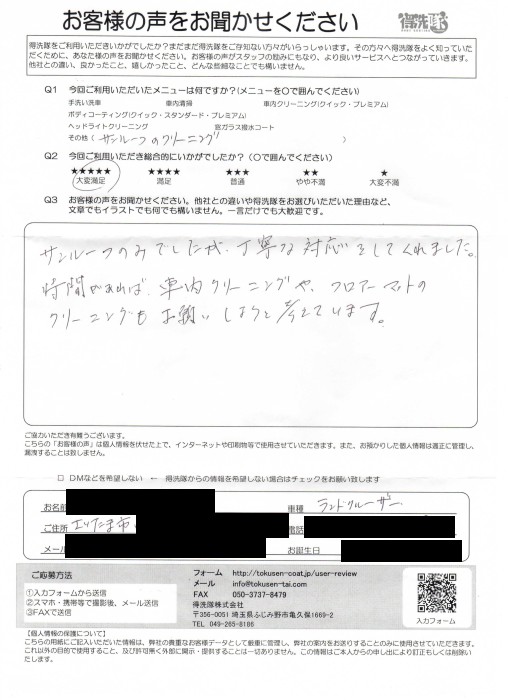 お客様の声をお聞かせください
得洗隊
得洗隊をご利用いただきいかがでしたか?まだまだ得洗隊をご存知ない方々がいらっしゃいます。その方々へ得洗隊をよく知っていた
だくために、あなた様の声をお聞かせください。お客様の声がスタッフの励みにもなり、より良いサービスへとつながっていきます。
他社との違い、良かったこと、嬉しかったこと、どんな些細なことでも構いません。
Q1 今回ご利用いただいたメニューは何ですか?(メニューを〇で囲んでください)
手洗い洗車 車内清掃 車内クリーニング(クイック・プレミアム)
ボディコーティング(クイック・スタンダード・プレミアム)
ヘッドライトクリーニング 窓ガラス撥水コート
その他( サンルーフのクリーニング )
Q2 今回ご利用いただき総合的にいかがでしたか?(〇で囲んでください)
★★★★★ ★★★★ ★★★ ★★ ★
大変満足 満足 普通 やや不満 大不満
Q3 お客様の声をお聞かせください。他社との違いや得洗隊をお選びいただいた理由など、
文章でもイラストでも何でも構いません。一言だけでも大歓迎です。
サンルーフのみでしたが、丁寧な対応をしてくれました。
時間があれば、車内クリーニングや、フロアーマットの
クリーニングもお願いしようと考えています。
ご協力いただき有難うございます。
こちらの「お客様の声」は個人情報を伏せた上で、インターネットや印刷物等で使用させていただきます。また、お預かりした個人情報は適正に管理し、
漏洩することは致しません。
□ DMなどを希望しない ← 得洗隊からの情報を希望しない場合はチェックをお願い致します
お名前 車種 ランドクルーザー
ご住所 さいたま市 電話
メール お誕生日
ご応募方法
①入力フォームから送信
②スマホ・携帯等で撮影後、メール送信
③FAXで送信
フォーム http://tokusen-coat.jp/user-review
メール info@tokusen-tai.com
FAX 050-3737-8479
得洗隊株式会社
〒356-0051 埼玉県ふじみ野市亀久保1669-2
TEL 049-265-8186
入力フォーム
【個人情報の保護について】
こちらの用紙にご記入いただいた情報は、弊社の貴重なお客様データとして厳重に管理し、弊社の案内をお送りすることのみに使用させていただきます。
これ以外の目的で使用すること、及び許可無く外部に開示・提供することは一切ありません。この情報はご本人からの申し出により訂正もしくは削除い
たします。